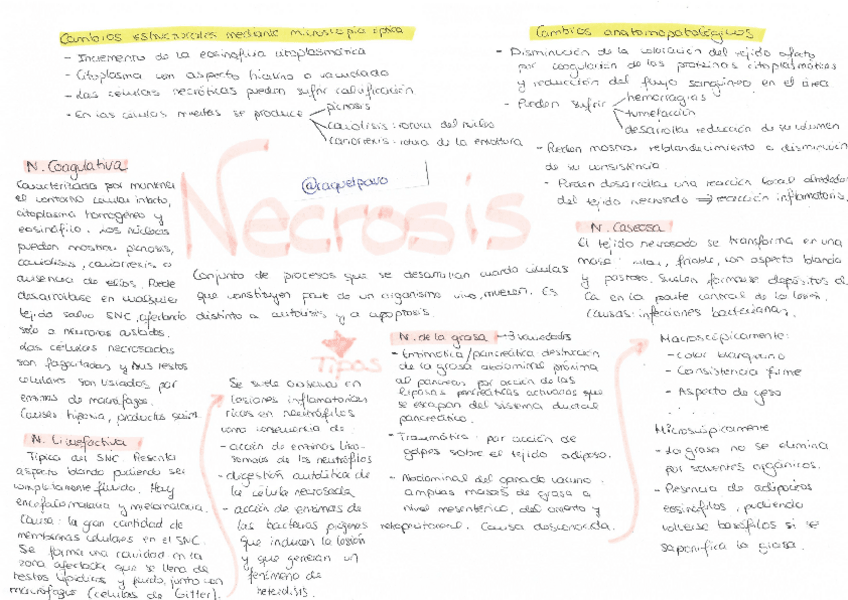 Cambios estructurales mediante microscopia óptica
- Incremento de la eosinofilia citoplasmática
- Citoplasma con aspecto hialino o vacuolado
- Las células necróticas pueden sufrir calcificación
- En las células muertas se produce
picnosis
cariolisis: rotura del núcleo
cariorrexis: rotura de la envoltura
Cambios anatomopatológicos
- Disminución de la coloración del tejido afecto
por coagulación de las proteínas citoplasmáticas
y reducción del flujo sanguíneo en el área.
- Pueden sufrir
hemorragias
tumefacción
desarrollar reducción de su volumen
- Pueden mostrar reblandecimiento o disminución
de su consistencia.
- Pueden desarrollar una reacción local alrededor
del tejido necrosado ⟹ reacción inflamatoria.
Necrosis
@raquelpavo
Conjunto de procesos que se desarrollan cuando células
que constituyen parte de un organismo vivo, mueren. Es
distinto a autolisis y a apoptosis.
Tipos
N. Coagulativa
Caracterizada por mantener
el contorno celular intacto,
citoplasma homogéneo y
eosinófilo. Los núcleos
pueden mostrar picnosis,
cariolisis, cariorrexis o
ausencia de ellos. Puede
desarrollarse en cualquier
tejido salvo SNC, afectando
solo a neuronas aisladas.
Las células necrosadas
son fagocitadas y sus restos
celulares son lisados por
enzimas de macrófagos.
Causas hipoxia, productos
N. Licuefactiva
Típica del SNC. Presenta
aspecto blando pudiendo ser
completamente fluido. Hay
encefalomalacia y mielomalacia.
Causa: la gran cantidad de
membranas celulares en el SNC.
Se forma una cavidad en la
zona afectada que se llena de
restos lipídicos y fluido, junto con
macrófagos (células de Gitter).
Se suele observar en
lesiones inflamatorias
ricos en neutrófilos
como consecuencia de:
- acción de enzimas liso-
somales de los neutrófilos
- digestión autolítica de
la célula necrosada
- acción de enzimas de
las bacterias piógenas
que inducen la lesión
y que generan un
fenómeno de
heterolisis.
N. de la grasa → 3 variedades
- Enzimática/pancreática destrucción
de la grasa abdominal próxima
al páncreas por acción de las
lipasas pancreáticas activadas que
se escapan del sistema ductal
pancreático.
- Traumática: por acción de
golpes sobre el tejido adiposo.
- Abdominal del ganado vacuno.
amplias masas de grasa a
nivel mesentérico, del omento y
retroperitoneal. Causa desconocida.
N. Caseosa
El tejido necrosado se transforma en una
masa friable, con aspecto blando
y pastoso. Suelen formarse depósitos de
Ca en la parte central de la lesión.
Causas: infecciones bacterianas.
Macroscópicamente:
- Color blanquino
- Consistencia firme
- Aspecto de yeso
Microscópicamente
- La grasa no se elimina
por solventes orgánicos.
- Presencia de adipocitos
eosinófilos, pudiendo
volverse basófilos si se
saponifica la grasa.